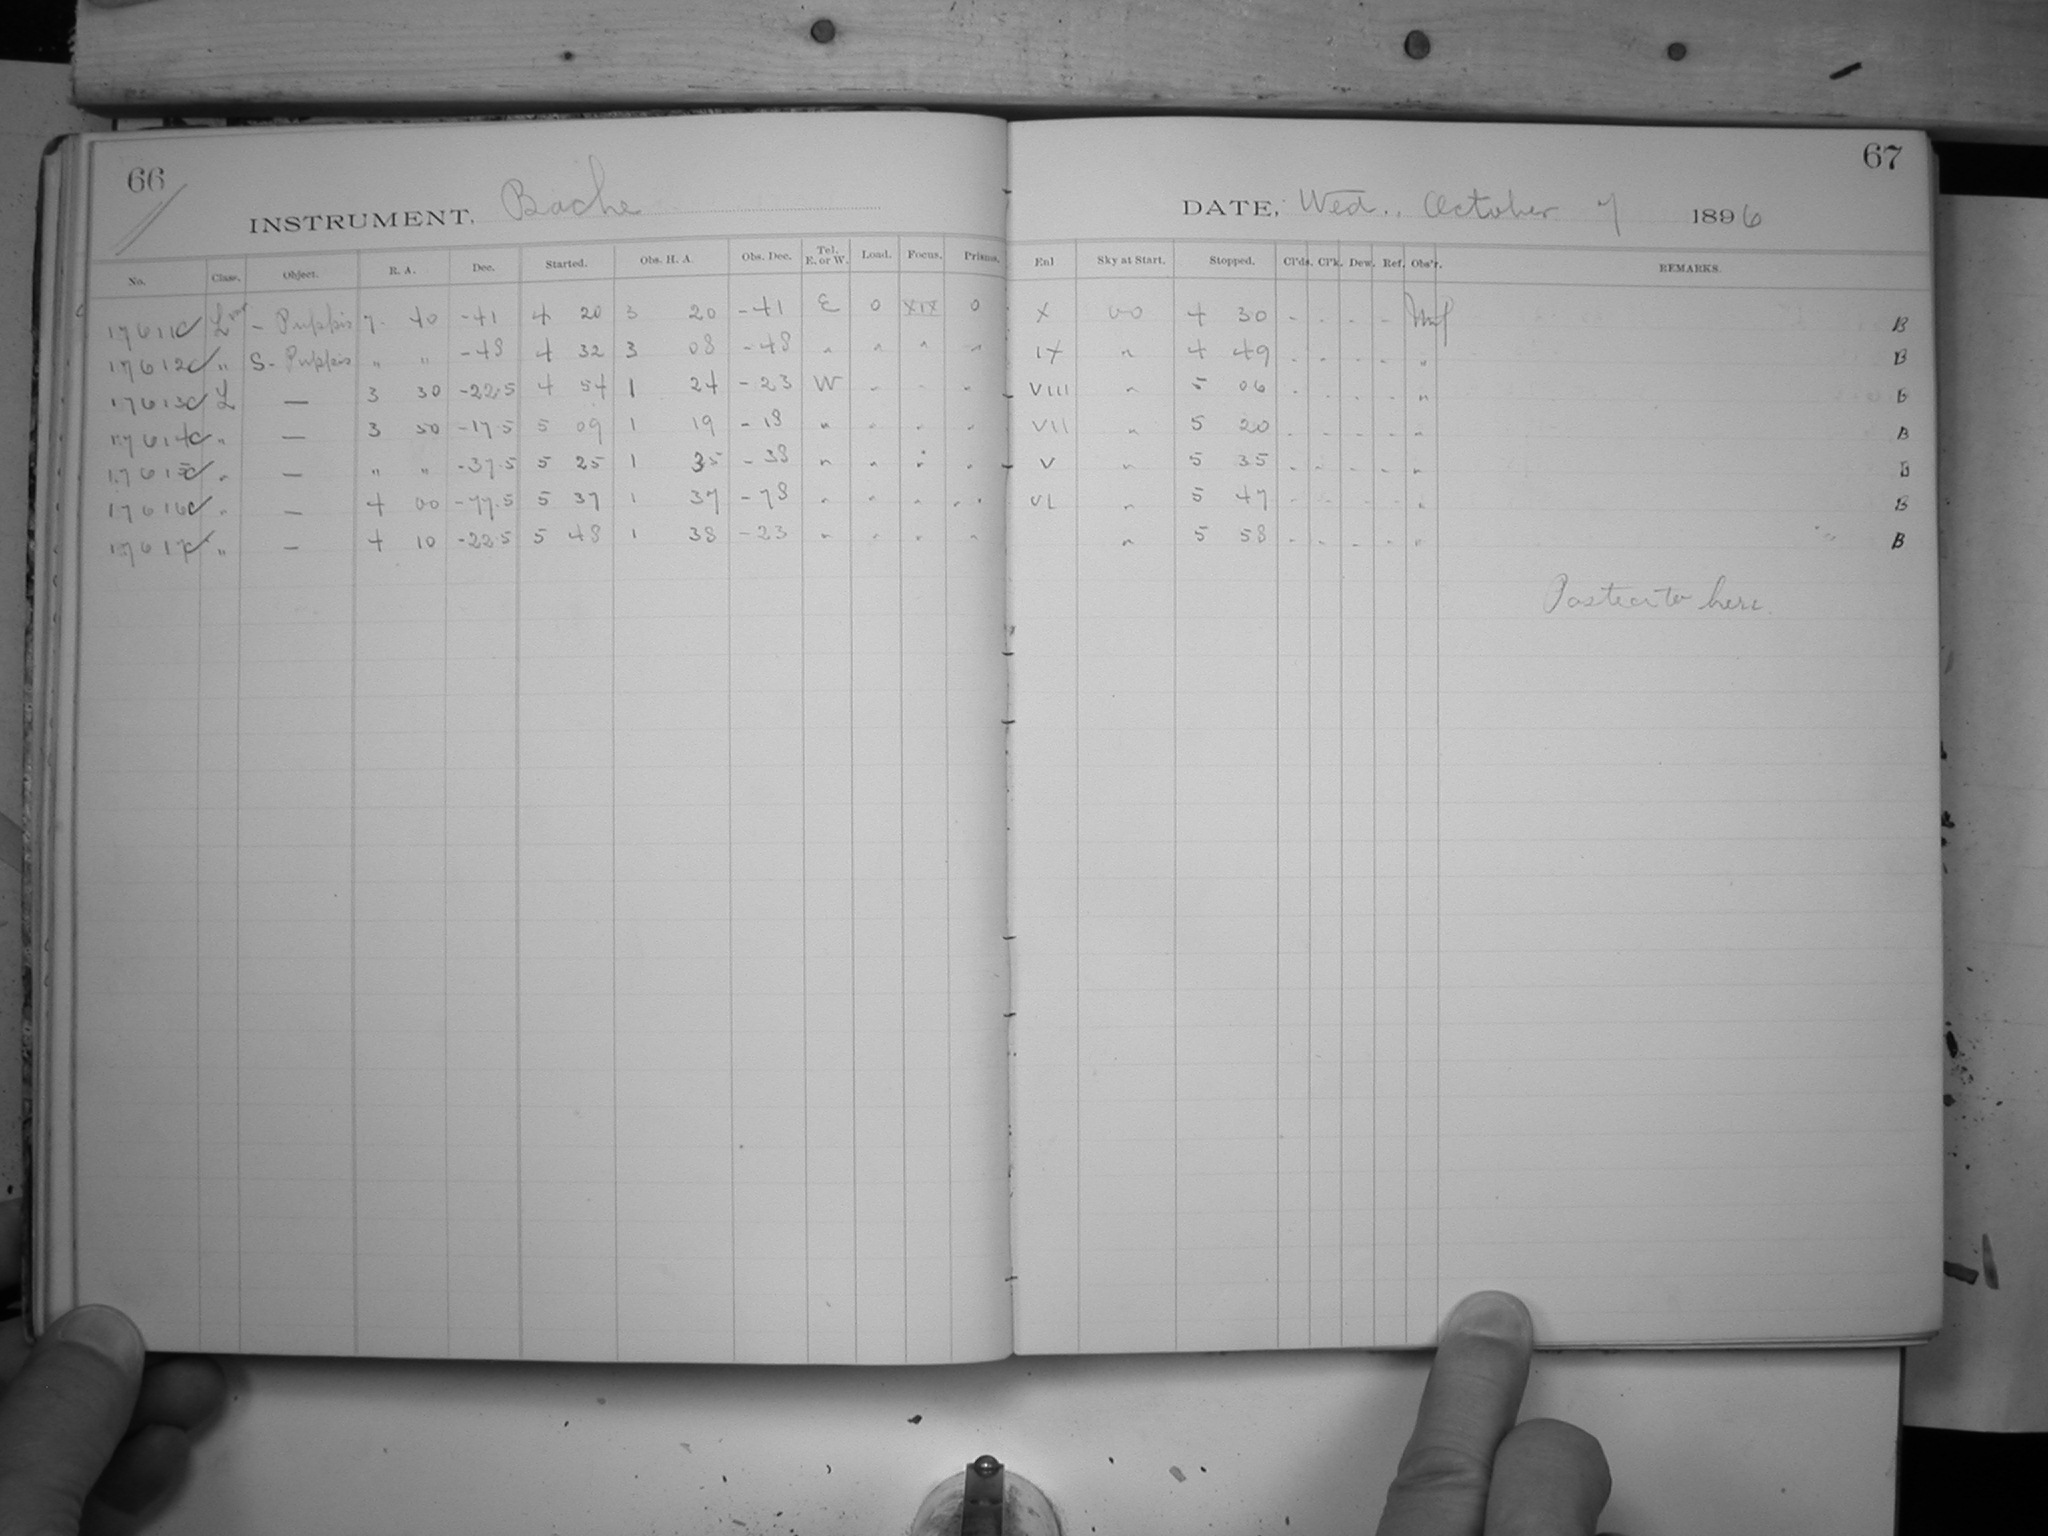 66
INSTRUMENT. Bache
No. Class. Object. R. A. Dec. Started. Obs. H. A. Obs. Dec. Tel. E. or W. Load. Focus. Prisms.
17611 L var - Puppis 7 40 -41 4 20 3 20 -41 E 0 XIX 0
17612 " S - Puppis " " -48 4 32 3 08 -48 " " " "
17613 L — 3 30 -22.5 4 54 1 24 -23 W " " "
17614 " — 3 50 -17.5 5 09 1 19 -18 " " " "
17615 " — " " -37.5 5 25 1 35 -38 " " " "
17616 " — 4 00 -77.5 5 37 1 37 -78 " " " "
17617 " — 4 10 -22.5 5 48 1 38 -23 " " " "
67
DATE, Wed., October 7 1896
Enl Sky at Start. Stopped. Cl'ds. Cl'k. Dew. Ref. Obs'r. REMARKS.
X 00 4 30 - - - - B
IX " 4 49 - - - - " B
VIII " 5 06 - - - - " B
VII " 5 20 - - - - " B
V " 5 35 - - - - " B
VI " 5 47 - - - - " B
" 5 58 - - - - " B
here.